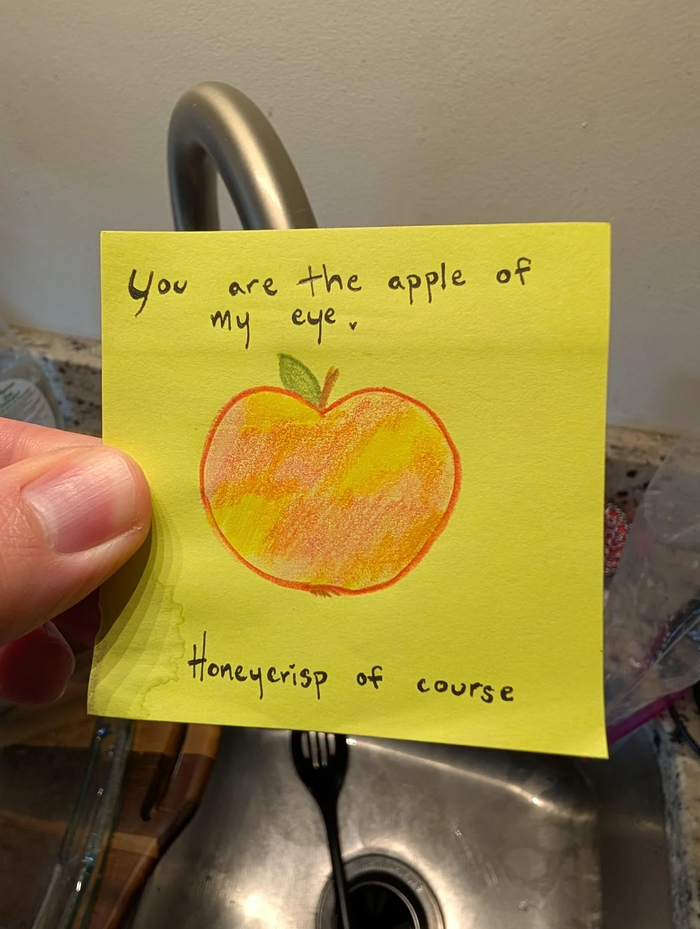 You are the apple of
my eye.
Honeycrisp of course